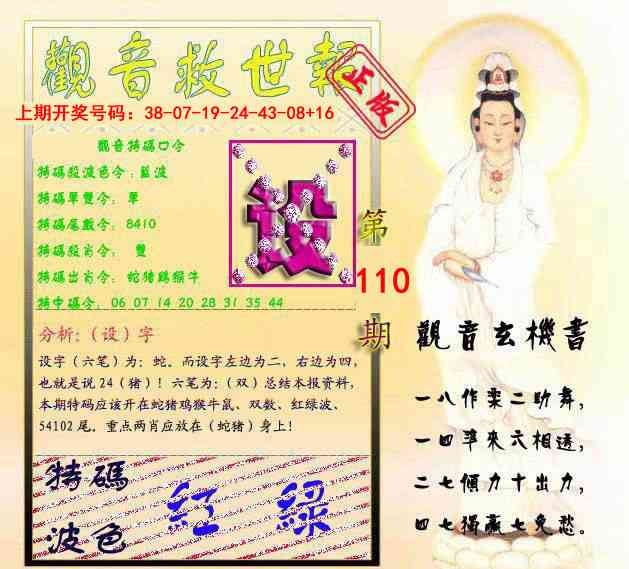 觀音救世報
正版
上期开奖号码：38-07-19-24-43-08+16
觀音特碼口令
特碼殺波色令：藍波
特碼單雙令：單
特碼尾數令：8410
特碼殺肖令：雙
特碼出肖令：蛇猪鷄猴牛
特中碼令：06 07 14 20 28 31 35 44
设
第
110
期
分析：（设）字
设字（六笔）为：蛇。而设字左边为二，右边为四，
也就是说24（猪）！六笔为：（双）总结本报资料，
本期特码应该开在蛇猪鸡猴牛鼠、双数、红绿波、
54102尾。重点两肖应放在（蛇猪）身上！
特碼
波色
紅 綠
觀音玄機書
一八作栾二助舞，
一四準來六相透，
二七傾力十出力，
四七獨贏七免愁。